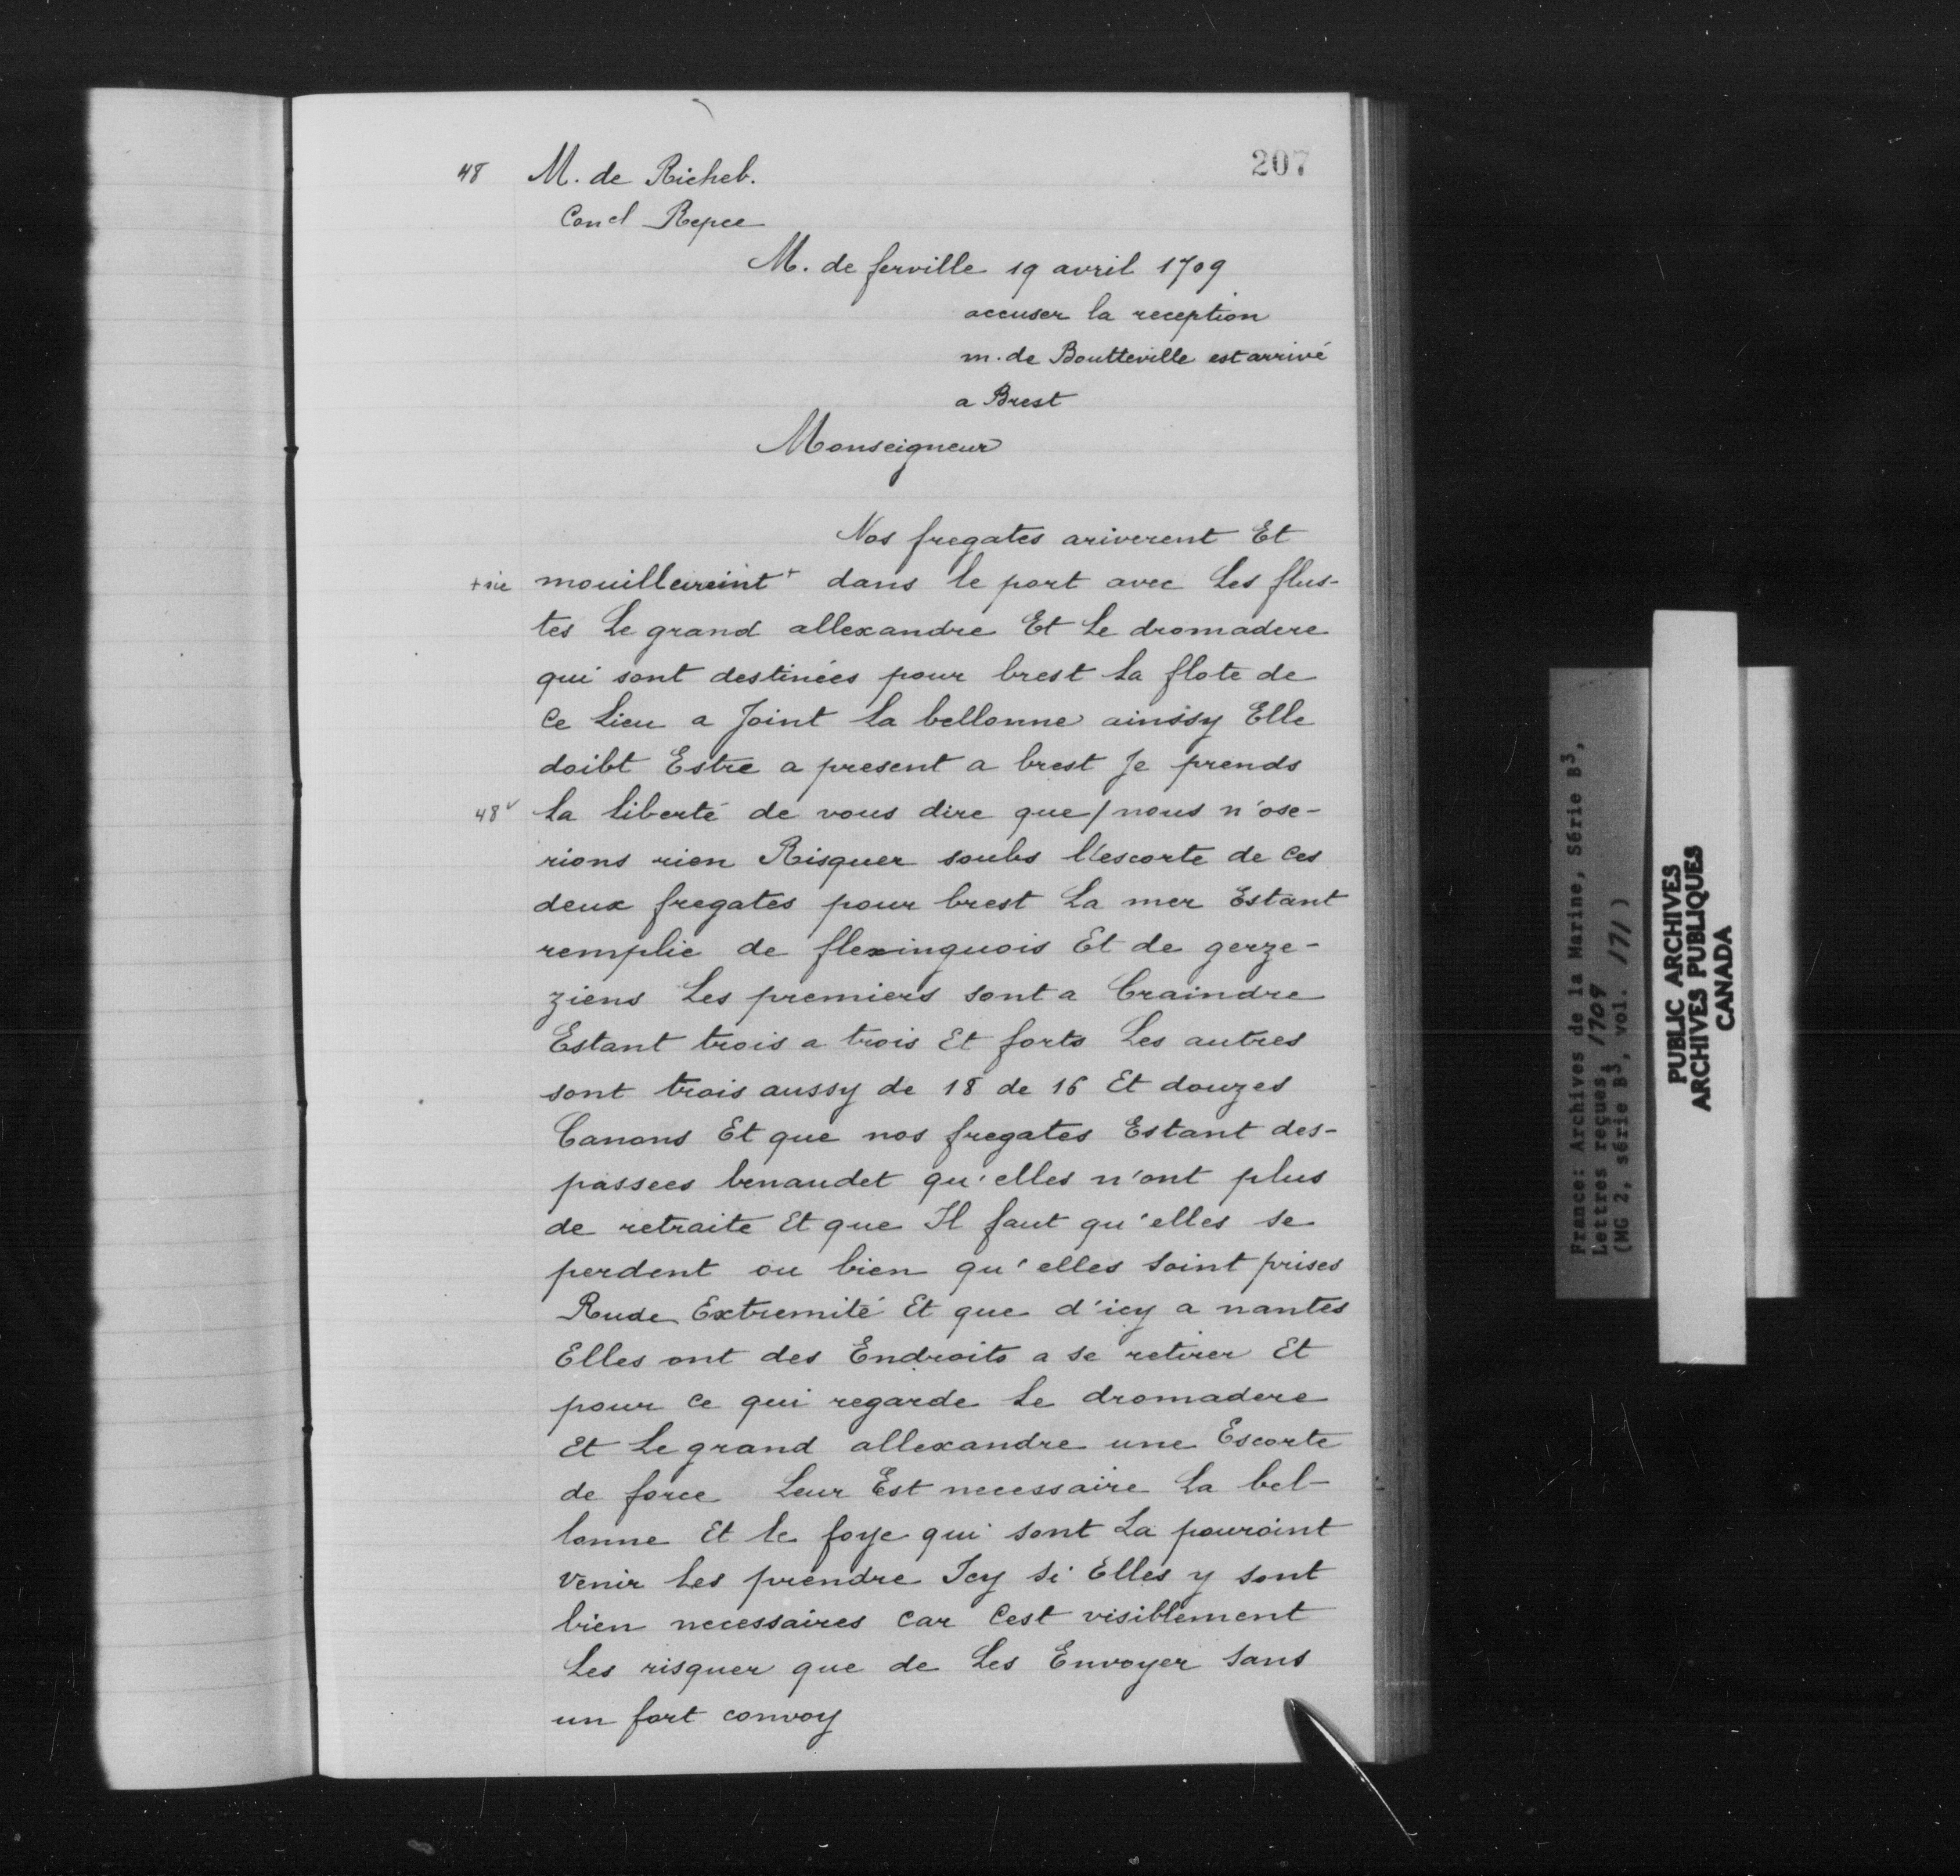 207
48 M. de Richeb.
Concl Repce
M. de ferville 19 avril 1709
accuser la reception
m. de Boutteville est arrivé
a Brest
Monseigneur
Nos fregates ariverent Et
+ sic mouilleireint + dans le port avec Les flus-
tes Le grand allexandre Et Le dromadere
qui sont destinées pour brest La flote de
Ce Lieu a Joint La bellonne ainssy Elle
doibt Estre a present a brest Je prends
48v La liberté de vous dire que / nous n'ose-
rions rien Risquer soubs l'escorte de Ces
deux fregates pour brest La mer Estant
remplie de flexinquois Et de gerze-
ziens Les premiers sont a Craindre
Estant trois a trois Et forts Les autres
sont trois aussy de 18 de 16 Et douzes
Canons Et que nos fregates Estant des-
passees benaudet qu'elles n'ont plus
de retraite Et que Il faut qu'elles se
perdent ou bien qu'elles soint prises
Rude Extremité Et que d'icy a nantes
Elles ont des Endroits a se retirer Et
pour Ce qui regarde Le dromadere
Et Le grand allexandre une Escorte
de force Leur Est necessaire La bel-
lonne Et le foye qui sont La pouroint
Venir Les prendre Icy si Elles y sont
bien necessaires Car Cest visiblement
Les risquer que de Les Envoyer sans
un fort convoy
France: Archives de la Marine, Série B3,
Lettres reçues, 1709
(MG 2, série B3, vol. 171)
PUBLIC ARCHIVES
ARCHIVES PUBLIQUES
CANADA